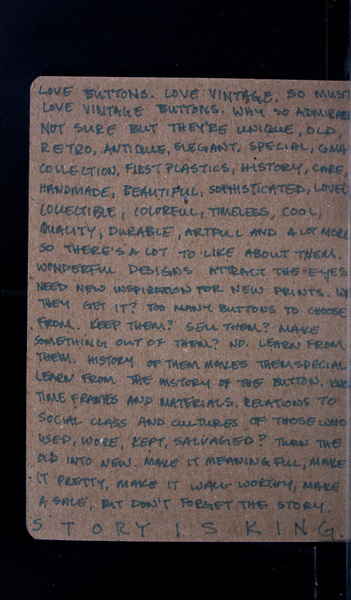 LOVE BUTTONS. LOVE VINTAGE. SO MUST
LOVE VINTAGE BUTTONS. WHY SO
NOT SURE BUT THEY'RE UNIQUE, OLD,
RETRO, ANTIQUE, ELEGANT, SPECIAL, GMA
COLLECTION, FIRST PLASTICS, HISTORY, CARE,
HANDMADE, BEAUTIFUL, SOPHISTICATED,
COLLECTIBLE, COLORFUL, TIMELESS, COOL,
QUALITY, DURABLE, ARTFUL AND A LOT MORE
SO THERE'S A LOT TO LIKE ABOUT THEM.
WONDERFUL DESIGNS ATTRACT THE EYES
NEED NEW INSPIRATION FOR NEW PRINTS.
THEY GET IT? TOO MANY BUTTONS TO CHOOSE
FROM. KEEP THEM? SELL THEM? MAKE
SOMETHING OUT OF THEM? NO. LEARN FROM
THEM. HISTORY OF THEM MAKES THEM SPECIAL
LEARN FROM THE HISTORY OF THE BUTTON.
TIME FRAMES AND MATERIALS, RELATIONS TO
SOCIAL CLASS AND CULTURES OF THOSE WHO
USED, WORE, KEPT, SALVAGED? TURN THE
OLD INTO NEW. MAKE IT MEANINGFUL, MAKE
IT PRETTY, MAKE IT WALL WORTHY, MAKE
A SALE, BUT DON'T FORGET THE STORY.
STORY IS KING.